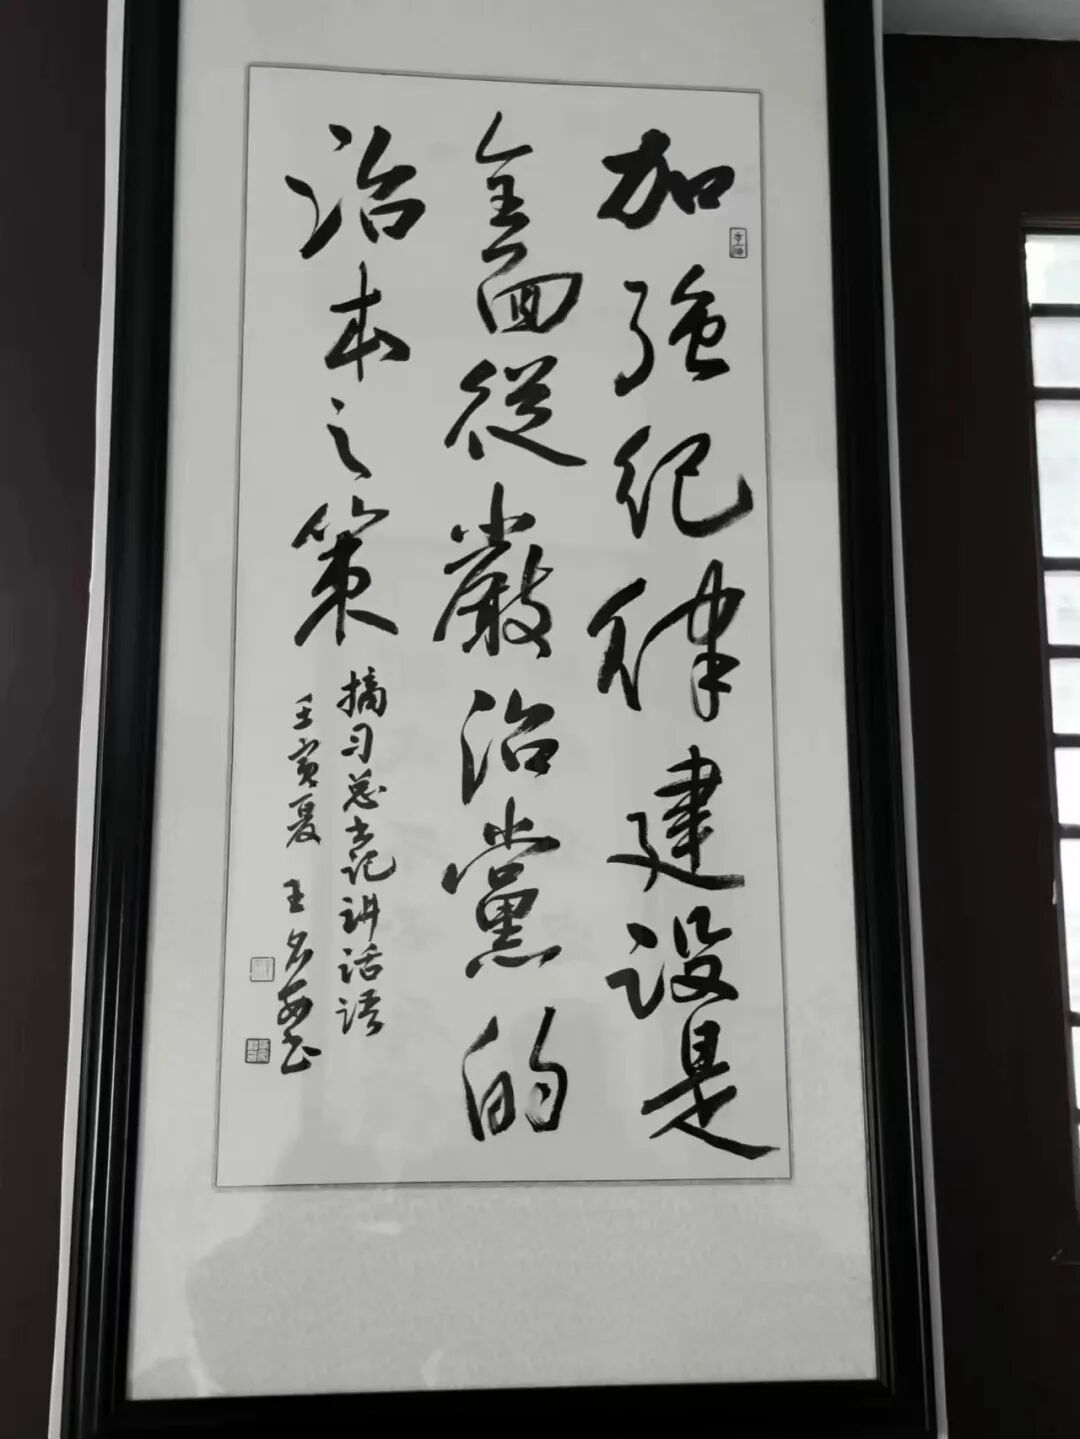 加强纪律建设是
全面從嚴治黨的
治本之策
摘习总书记讲话语
壬寅夏 王名海书